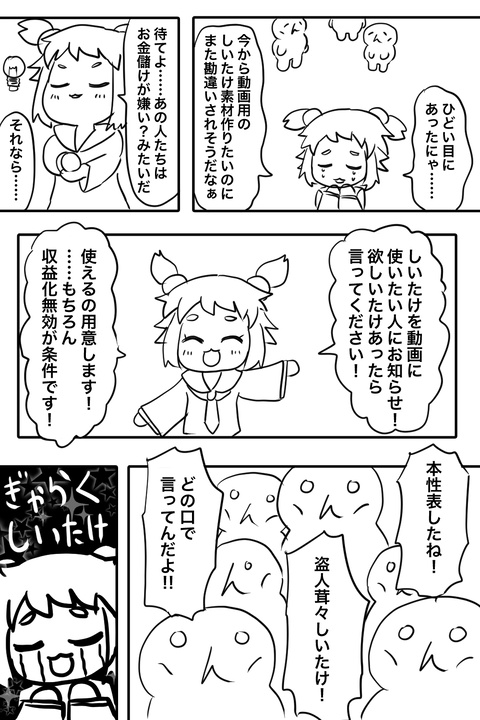 ひどい目に
あったにゃ……
今から動画用の
しいたけ素材作りたいのに
また勘違いされそうだなぁ
待てよ……あの人たちは
お金儲けが嫌い？みたいだ
それなら……
しいたけを動画に
使いたい人にお知らせ！
欲しいたけあったら
言ってください！
使えるの用意します！
……もちろん
収益化無効が条件です！
本性表したね！
盗人茸々しいたけ！
どの口で
言ってんだよ!!
ぎゃらく
しいたけ